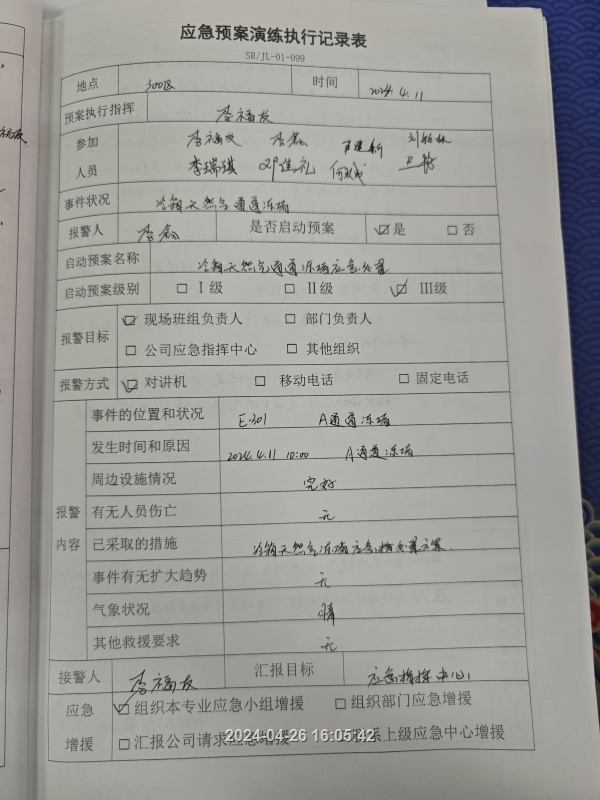 应急预案演练执行记录表
SR/JL-01-099
地点 300区 时间 2024.4.11
预案执行指挥 李福友
参加 李福友 李鑫
人员 李瑞琪 邓建礼
事件状况 冷箱天然气通道冻堵
报警人 李鑫 是否启动预案 ☑是 □否
启动预案名称 冷箱天然气通道冻堵应急处置
启动预案级别 □ Ⅰ级 □ Ⅱ级 ☑ Ⅲ级
报警目标 ☑ 现场班组负责人 □ 部门负责人
□ 公司应急指挥中心 □ 其他组织
报警方式 ☑ 对讲机 □ 移动电话 □ 固定电话
报警内容
事件的位置和状况 E-301 A通道冻堵
发生时间和原因 2024.4.11 10:00 A通道冻堵
周边设施情况 完好
有无人员伤亡 无
已采取的措施 冷箱天然气冻堵应急处置方案.
事件有无扩大趋势 无
气象状况 晴
其他救援要求 无
接警人 李福友 汇报目标 应急指挥中心
应急 ☑ 组织本专业应急小组增援 □ 组织部门应急增援
增援 □ 汇报公司请求应急增援 系上级应急中心增援
2024-04-26 16:05:42